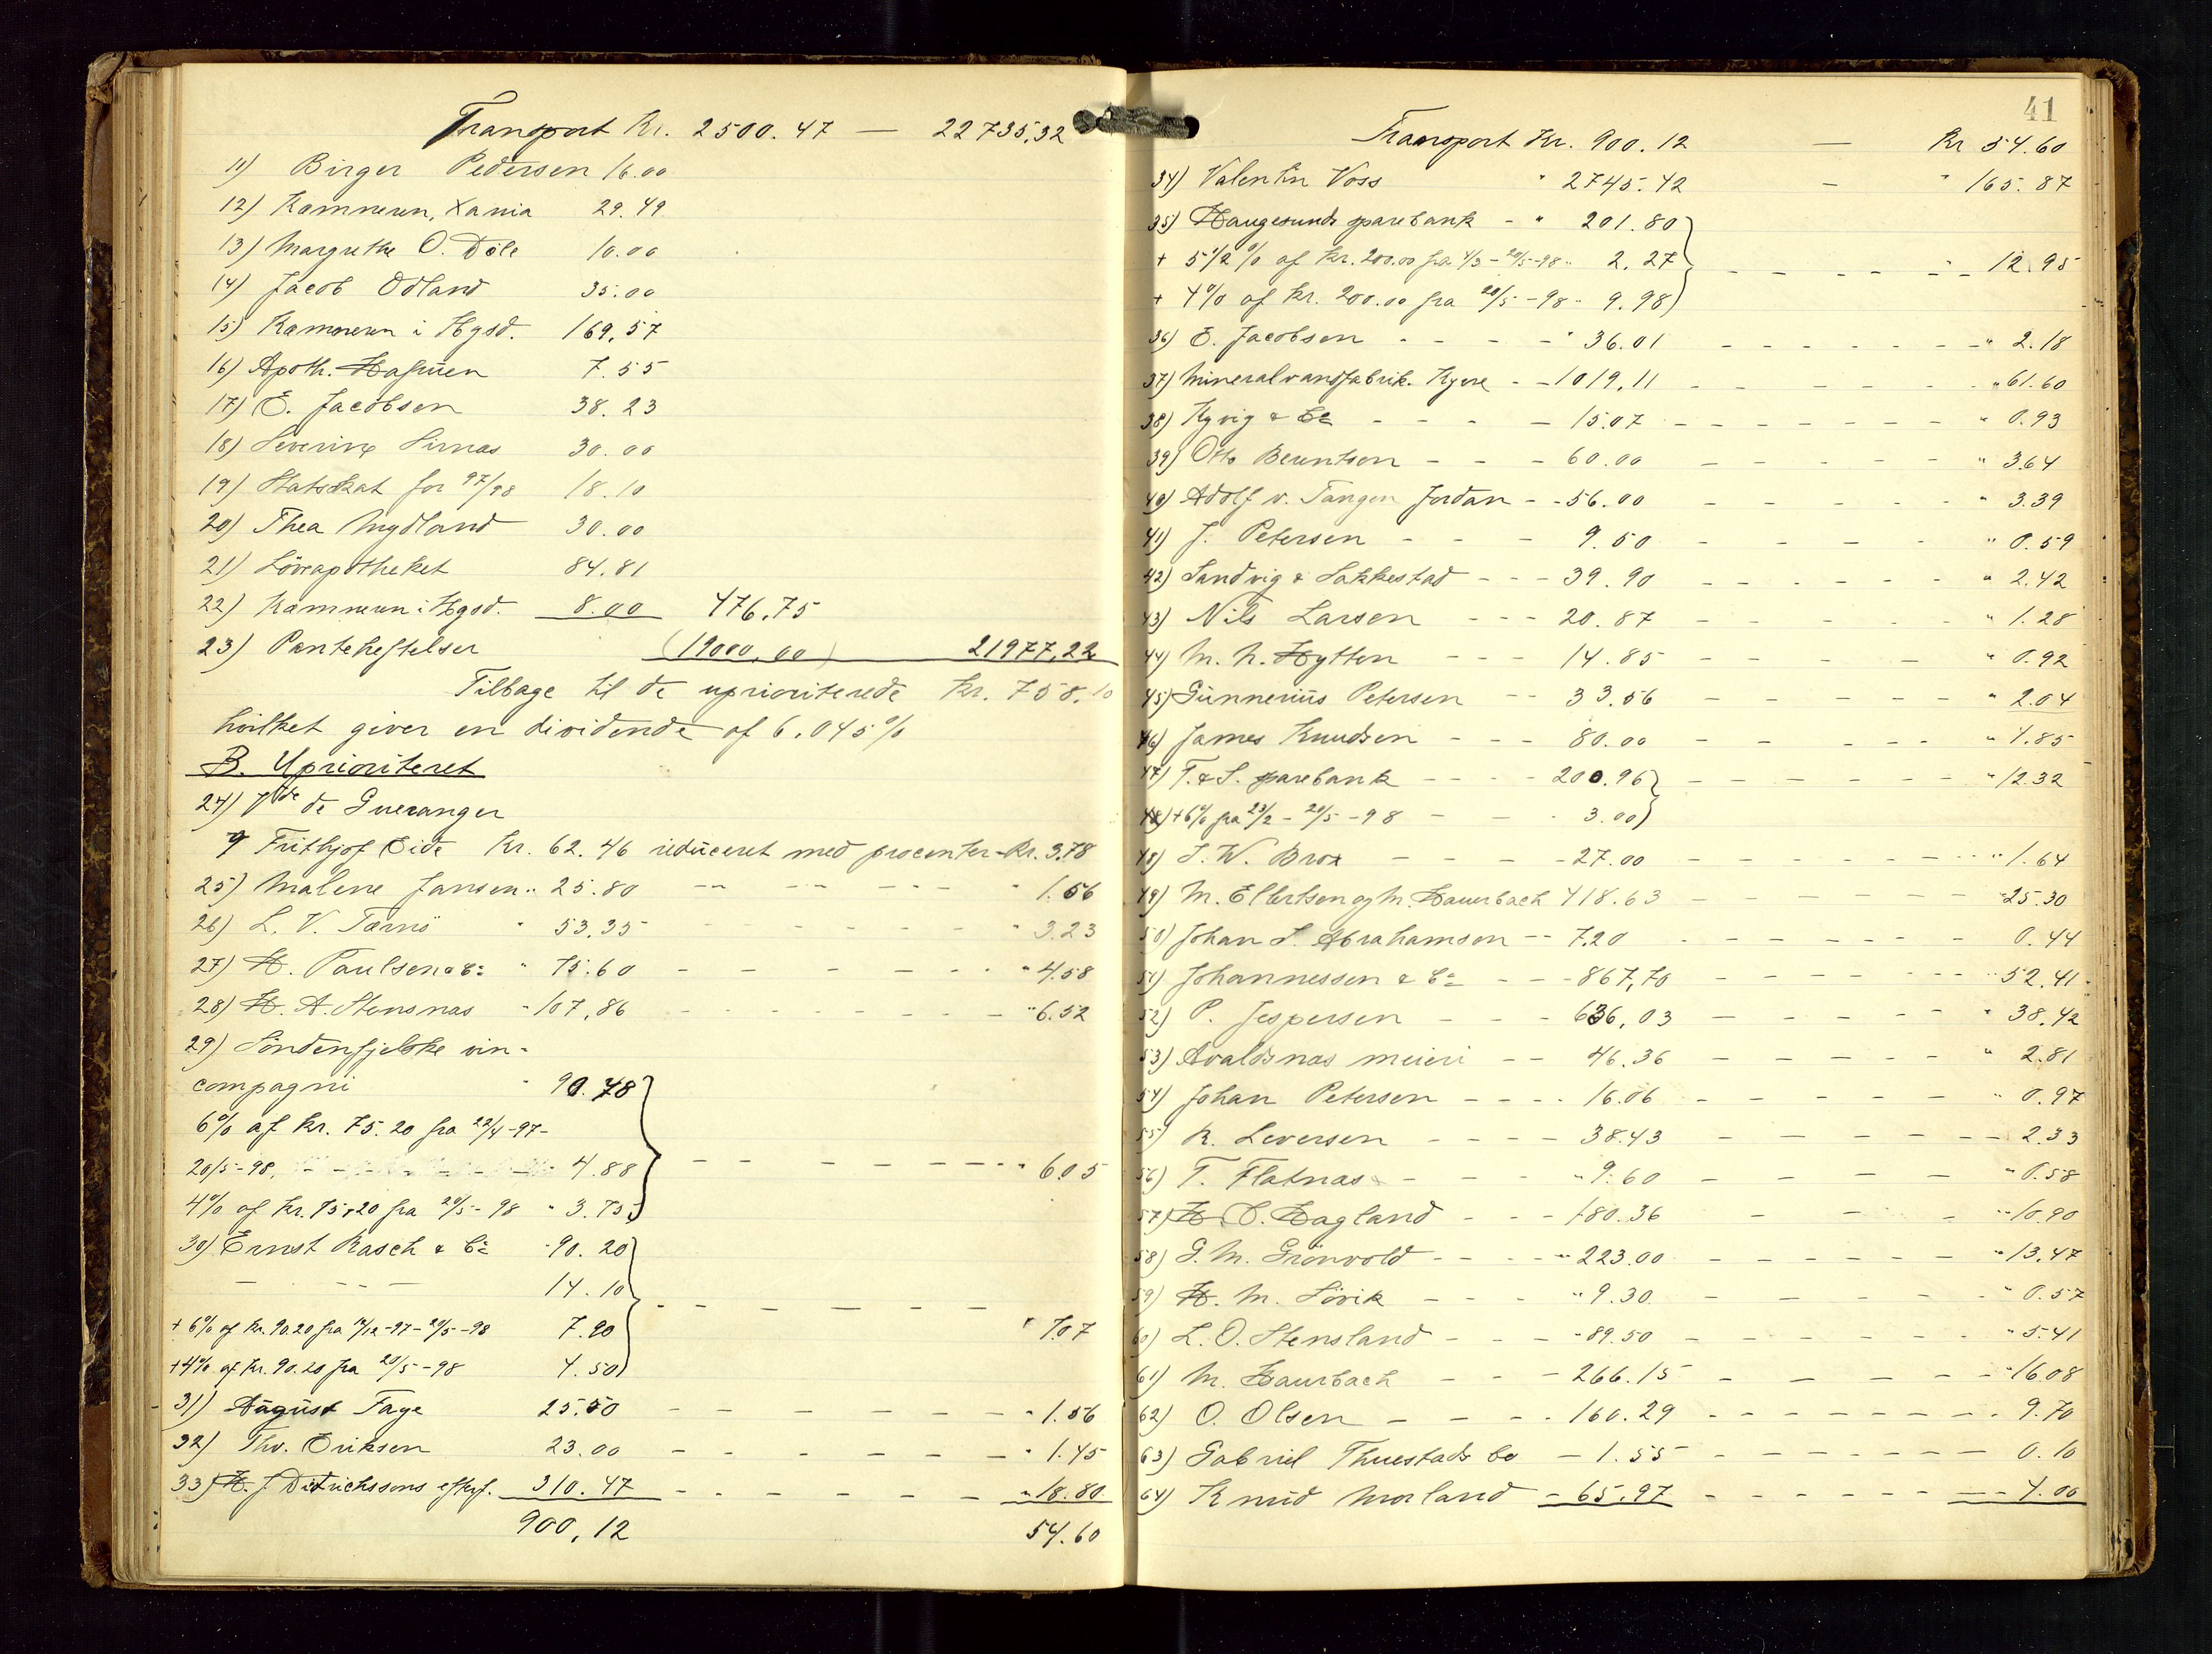 Transport Kr. 2500.47 — 22735.32
11) Birger Pedersen 16.00
12) Kæmneren, Xania 29.49
13) Margrethe O. Döle 10.00
14) Jacob Odland 35.00
15) Kæmneren i Hgsd. 169.57
16) Apoth. 7.55
17) E. Jacobsen 38.23
18) Severine Sirnæs 30.00
19) Statsskat for 97/98 18.10
20) Thea Mydland 30.00
21) Löveapotheket 84.81
22) Kæmneren i Hgsd. 8.00 476.75
23) Panteheftelser (19000.00) 21977.22
Tilbage til de uprioriterede Kr. 758.10
hvilket giver en dividende af 6.045%
B. Uprioriteret
24) Vde de Gueranger
Frithjof Eide Kr. 62.46 reduceret med procenter - Kr. 3.78
25) Malene Jansen " 25.80 — — — — " 1.56
26) L. V. Tærnö " 53.35 - - - - - - " 3.23
27) H. Paulsen & Co " 75.60 - - - - - - " 4.58
28) H. A. Stensnæs - 107.86 - - - - - - - " 6.52
29) Söndenfjelske vin-
compagni " 90.78
6% af kr. 75.20 fra 22/4-97-
20/5-98. 4.88 - - - - - - - " 6.05
4% af kr. 75.20 fra 20/5-98 " 3.75
30) Ernst Rasch & Co - 90.20
— - - — 14.10
+ 6% af kr. 90.20 fra 14/12-97-20/5-98 7.90 - - - - - - - " 7.07
+ 4% af kr. 90.20 fra 20/5-98 4.50
31) August Tage 25.50 - - - - - - - - 1.56
32) Thv. Eriksen 23.00 - - - - - - " 1.45
33) H. J. Ditrichssons efterf. 310.47 - - - - - - - 18.80
900.12 54.60
41
Transport Kr. 900.12 — Kr 54.60
34) Valentin Voss " 2745.42 — " 165.87
35) Haugesunds sparebank - " 201.80
+ 5 1/2% af kr. 200.00 fra 4/3-20/5-98 " 2.27 - - - - - - 12.95
+ 4% af kr. 200.00 fra 20/5-98 - 9.98
36) E. Jacobsen - - - - " 36.01 - - - - - - - " 2.18
37) Mineralvandfabrik. Hyere - - 1019.11 - - - - - " 61.60
38) Hyvig & Co - - - - 15.07 - - - - - - - " 0.93
39) Otto Berentsen - - - 60.00 - - - - - " 3.64
40) Adolf v. Tangen Jordan - - 56.00 - - - - - " 3.39
41) J. Petersen - - - 9.50 - - - - " 0.59
42) Sandvig & Sakkestad - - - 39.90 - - - - - - " 2.42
43) Nils Larsen - - - 20.87 - - - - - " 1.28
44) M. N. Hytten - - - 14.85 - - - - " 0.92
45) Gunnerius Petersen - - 33.56 - - - - - " 2.04
46) James Knudsen - - - 80.00 - - - - - " 4.85
47) T. & S. sparebank - - - - 200.96 - - - - - - " 12.32
+ 6% fra 23/2-20/5-98 - - - 3.00
48) J. W. Brox - - - - 27.00 - - - - - - " 1.64
49) M. Ellertsen og M. Haurbach 418.63 - - - - - - - 25.30
50) Johan S. Abrahamsen - - 7.20 - - - - - - - 0.44
51) Johannessen & Co - - - 867.70 - - - - - - - 52.41
52) P. Jespersen - - - 636.03 - - - - - " 38.42
53) Avaldsnæs meieri - - 46.36 - - - - - " 2.81
54) Johan Petersen - - - - 16.06 - - - - - " 0.97
55) K. Seversen - - - - 38.43 - - - - - - 2.33
56) T. Flatnæs - - - " 9.60 - - - - " 0.58
57) H. C. Hagland - - - 180.36 - - - - - 10.90
58) G. M. Grönvold - - - - " 223.00 - - - - - - " 13.47
59) H. M. Lövik - - - " 9.30 - - - - - " 0.57
60) L. O. Stensland - - - - 89.50 - - - - - - " 5.41
61) M. Haurbach - - - 266.15 - - - - - - 16.08
62) O. Olsen - - - - 160.29 - - - - - - - 9.70
63) Gabriel Thuestads bo - 1.55 - - - - - - - - 0.10
64) Knud Morland - 65.97 - - - - - - - - 4.00